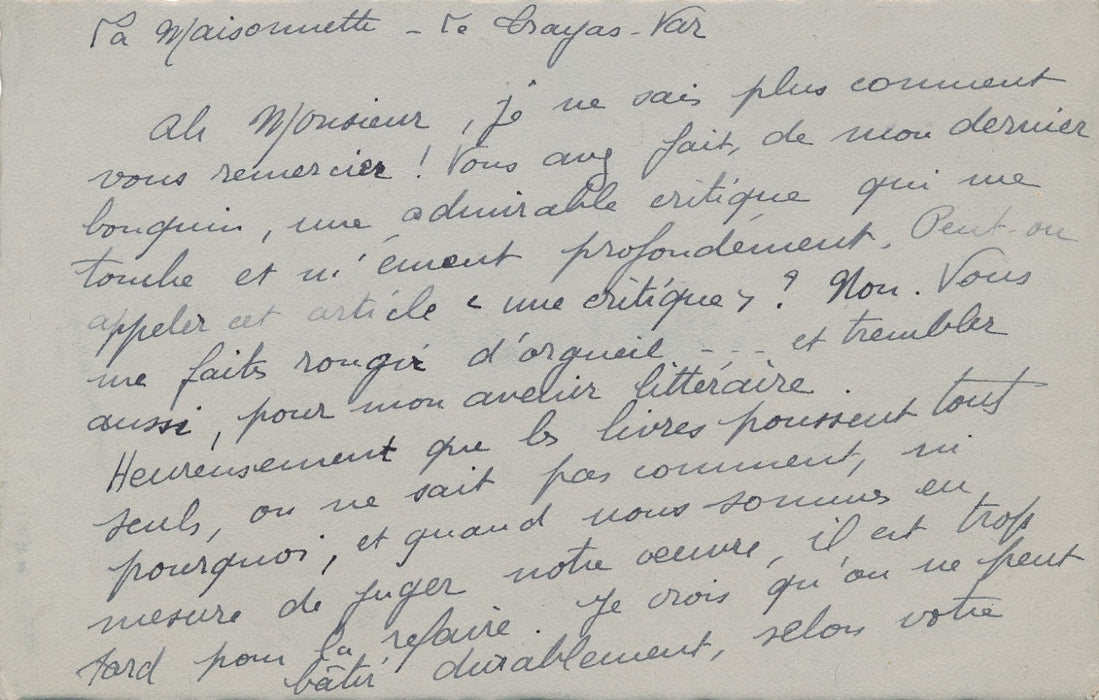 La Maisonnette - Le Trayas - Var
Ah Monsieur, je ne sais plus comment
vous remercier ! Vous avez fait, de mon dernier
bouquin, une admirable critique qui me
touche et m'émeut profondément. Peut-on
appeler cet article "une critique" ? Non. Vous
me faites rougir d'orgueil - - - et trembler
aussi, pour mon avenir littéraire.
Heureusement que les livres poussent tout
seuls, on ne sait pas comment, ni
pourquoi, et quand nous sommes en
mesure de juger notre oeuvre, il est trop
tard pour la refaire. Je crois qu'on ne peut
bâtir durablement, selon votre